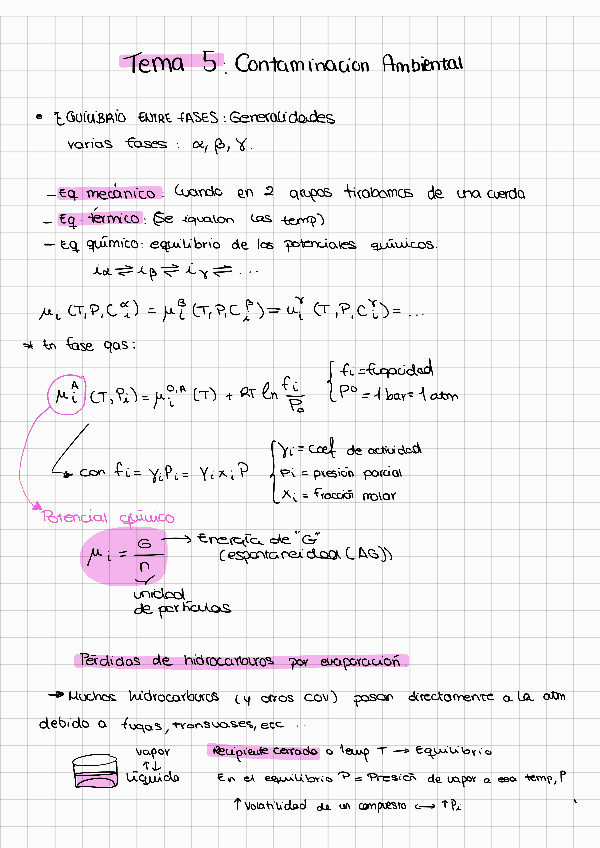 Tema 5: Contaminacion Ambiental
• EQUILIBRIO ENTRE FASES: Generalidades
varias fases : α, β, γ.
- Eq mecánico: Cuando en 2 grupos tirabamos de una cuerda
- Eq. térmico: (Se igualan las temp)
- Eq químico: equilibrio de los potenciales químicos.
iα ⇌ iβ ⇌ iγ ⇌ ...
μi (T, P, Ci^α) = μi^β (T, P, Ci^β) = ui^γ (T, P, Ci^γ) = ...
* En fase gas:
μi^A (T, Pi) = μi^0,A (T) + RT ln fi/P0
fi = fugacidad
P° = 1 bar = 1 atm
con fi = γi Pi = γi xi P
γi = coef de actividad
Pi = presión parcial
xi = fracción molar
Potencial químico
μi = G/n → Energía de "G"
(espontaneidad (ΔG))
unidad
de partículas
Pérdidas de hidrocarburos por evaporación
→ Muchos hidrocarburos (y otros COV) pasan directamente a la atm
debido a fugas, transvases, etc ...
vapor
↑↓
líquido
Recipiente cerrado a temp T → Equilibrio
En el equilibrio P = Presión de vapor a esa temp, P
↑ Volatilidad de un compuesto ↔ ↑Pi